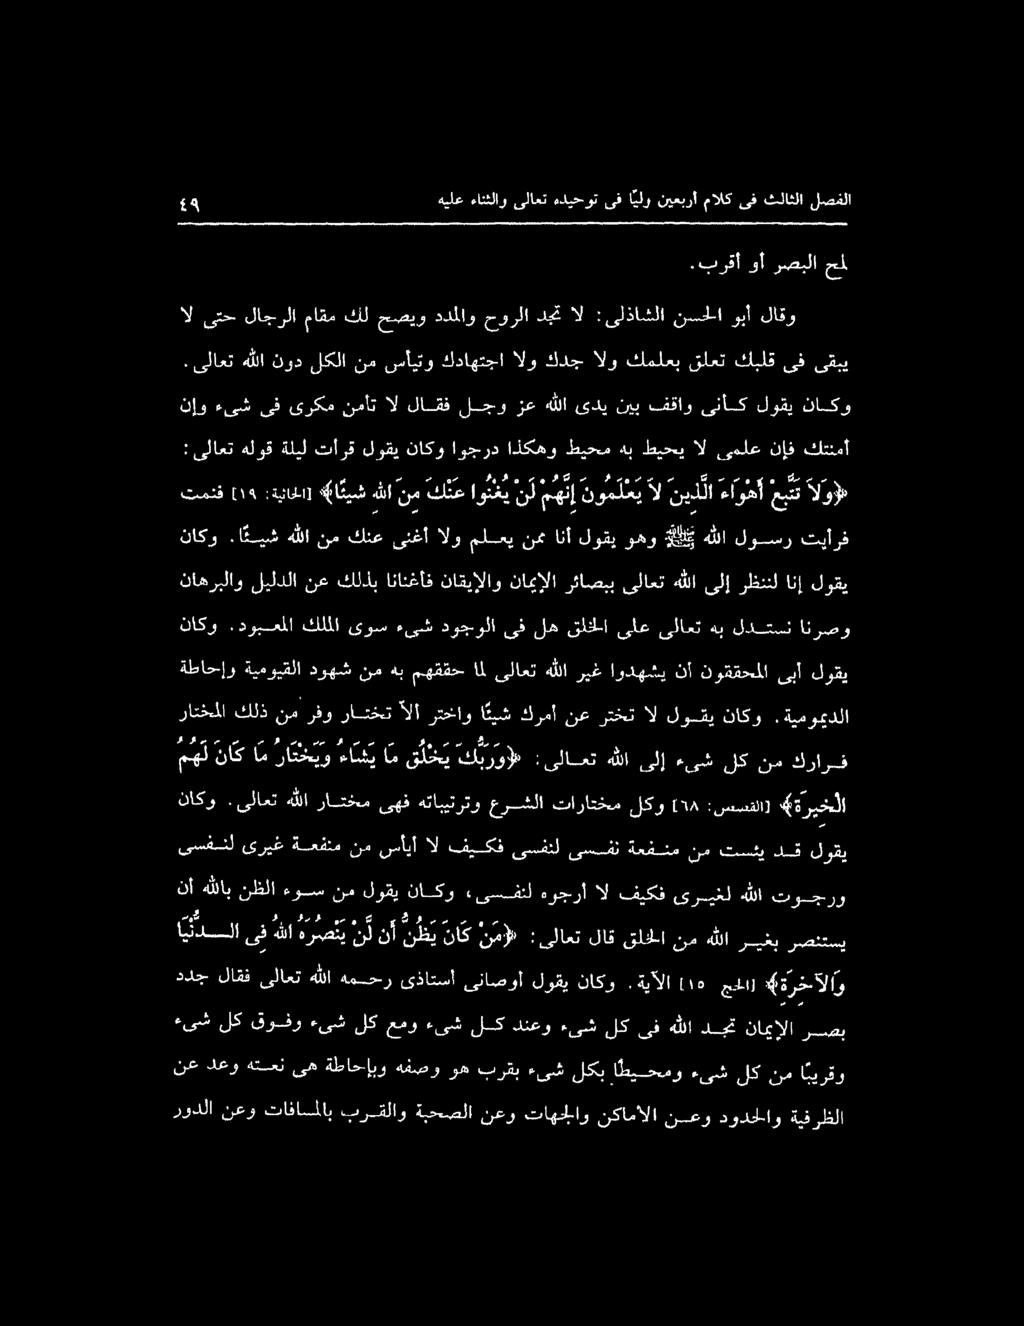 الفصل الثالث فى كلام أربعين وليًا فى توحيده تعالى والثناء عليه ٤٩
لمح البصر أو أقرب.
وقال أبو الحسن الشاذلى: لا تجد الروح والمدد ويصح لك مقام الرجال حتى لا
يبقى فى قلبك تعلق بعلمك ولا جدك ولا اجتهادك وتيأس من الكل دون الله تعالى.
وكان يقول كأنى واقف بين يدى الله عز وجل فقال لا تأمن مكرى فى شىء وإن
أمنتك فإن علمى لا يحيط به محيط وهكذا درجوا وكان يقول قرأت ليلة قوله تعالى:
﴿وَلاَ تَتَّبِعْ أَهْوَاءَ الَّذِينَ لاَ يَعْلَمُونَ إِنَّهُمْ لَنْ يُغْنُوا عَنْكَ مِنَ اللهِ شيئًا﴾ [الجاثية: ١٩] فنمت
فرأيت رسول الله ﷺ وهو يقول أنا ممن يعلم ولا أغنى عنك من الله شيئًا. وكان
يقول إنا لننظر إلى الله تعالى ببصائر الإيمان والإيقان فأغنانا بذلك عن الدليل والبرهان
وصرنا نستدل به تعالى على الخلق هل فى الوجود شىء سوى الملك المعبود. وكان
يقول أبى المحققون أن يشهدوا غير الله تعالى لما حققهم به من شهود القيومية وإحاطة
الديمومية. وكان يقول لا تختر عن أمرك شيئًا واختر ألاّ تختار وفر من ذلك المختار
فرارك من كل شىء إلى الله تعالى: ﴿وَرَبُّكَ يَخْلُقُ مَا يَشَاءُ وَيَخْتَارُ مَا كَانَ لَهُمُ
الْخِيرَةُ﴾ [القصص: ٦٨] وكل مختارات الشرع وترتيباته فهى مختار الله تعالى. وكان
يقول قد يئست من منفعة نفسى لنفسى فكيف لا أيأس من منفعة غيرى لنفسى
ورجوت الله لغيرى فكيف لا أرجوه لنفسى، وكان يقول من سوء الظن بالله أن
يستنصر بغير الله من الخلق قال تعالى: ﴿مَنْ كَانَ يَظُنُّ أَن لَّنْ يَنْصُرَهُ اللهُ فِى الدُّنْيَا
وَالآخِرَةِ﴾ [الحج ١٥] الآية. وكان يقول أوصانى أستاذى رحمه الله تعالى فقال جدد
بصر الإيمان تجد الله فى كل شىء وعند كل شىء ومع كل شىء وفوق كل شىء
وقريبًا من كل شىء ومحيطًا بكل شىء بقرب هو وصفه وبإحاطة هى نعته وعد عن
الظرفية والحدود وعن الأماكن والجهات وعن الصحبة والقرب بالمسافات وعن الدور